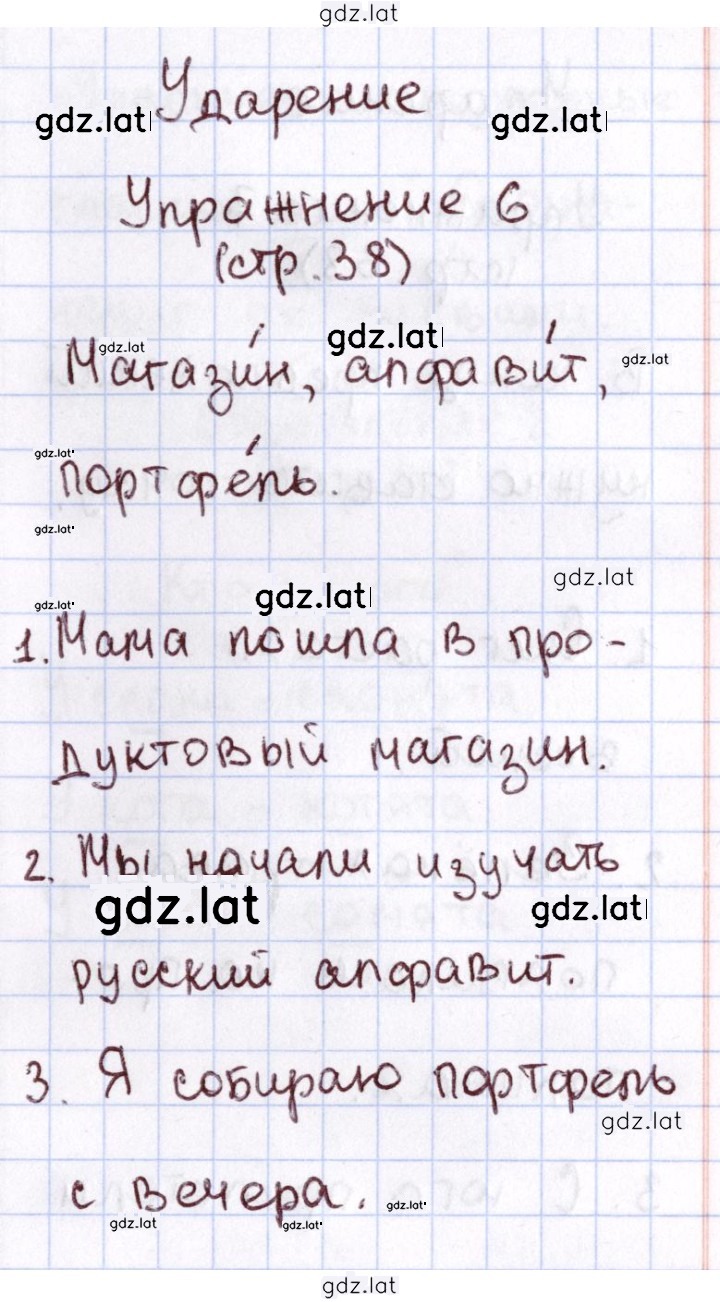 gdz.lat
Ударение
gdz.lat gdz.lat
Упражнение 6
(стр.38)
gdz.lat gdz.lat gdz.lat
Магази́н, алфави́т,
gdz.lat
портфе́ль.
gdz.lat
gdz.lat
gdz.lat gdz.lat
1. Мама пошла в про-
дуктовый магазин.
2. Мы начали изучать
gdz.lat gdz.lat
русский алфавит.
3. Я собираю портфель
gdz.lat
с вечера. gdz.lat
gdz.lat gdz.lat
gdz.lat